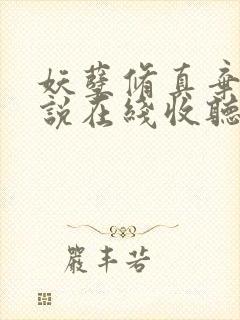 妖孽脩真棄
說在綫收聽
嚴丰若